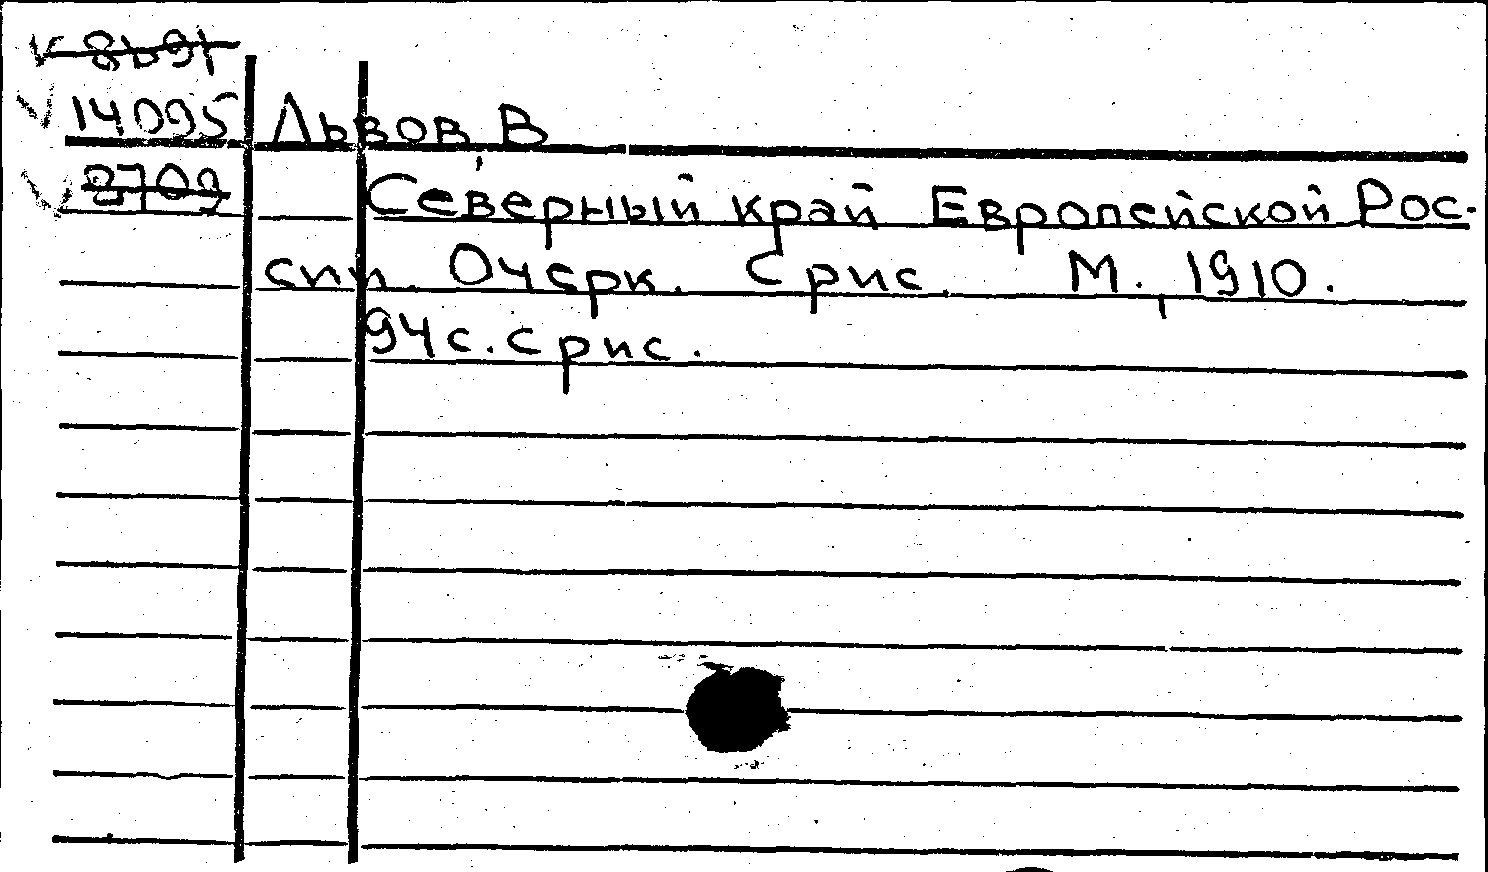 14095 Львов, В
2709 Северный край Европейской Рос-
сии. Очерк. С рис. М., 1910.
94с. с рис.